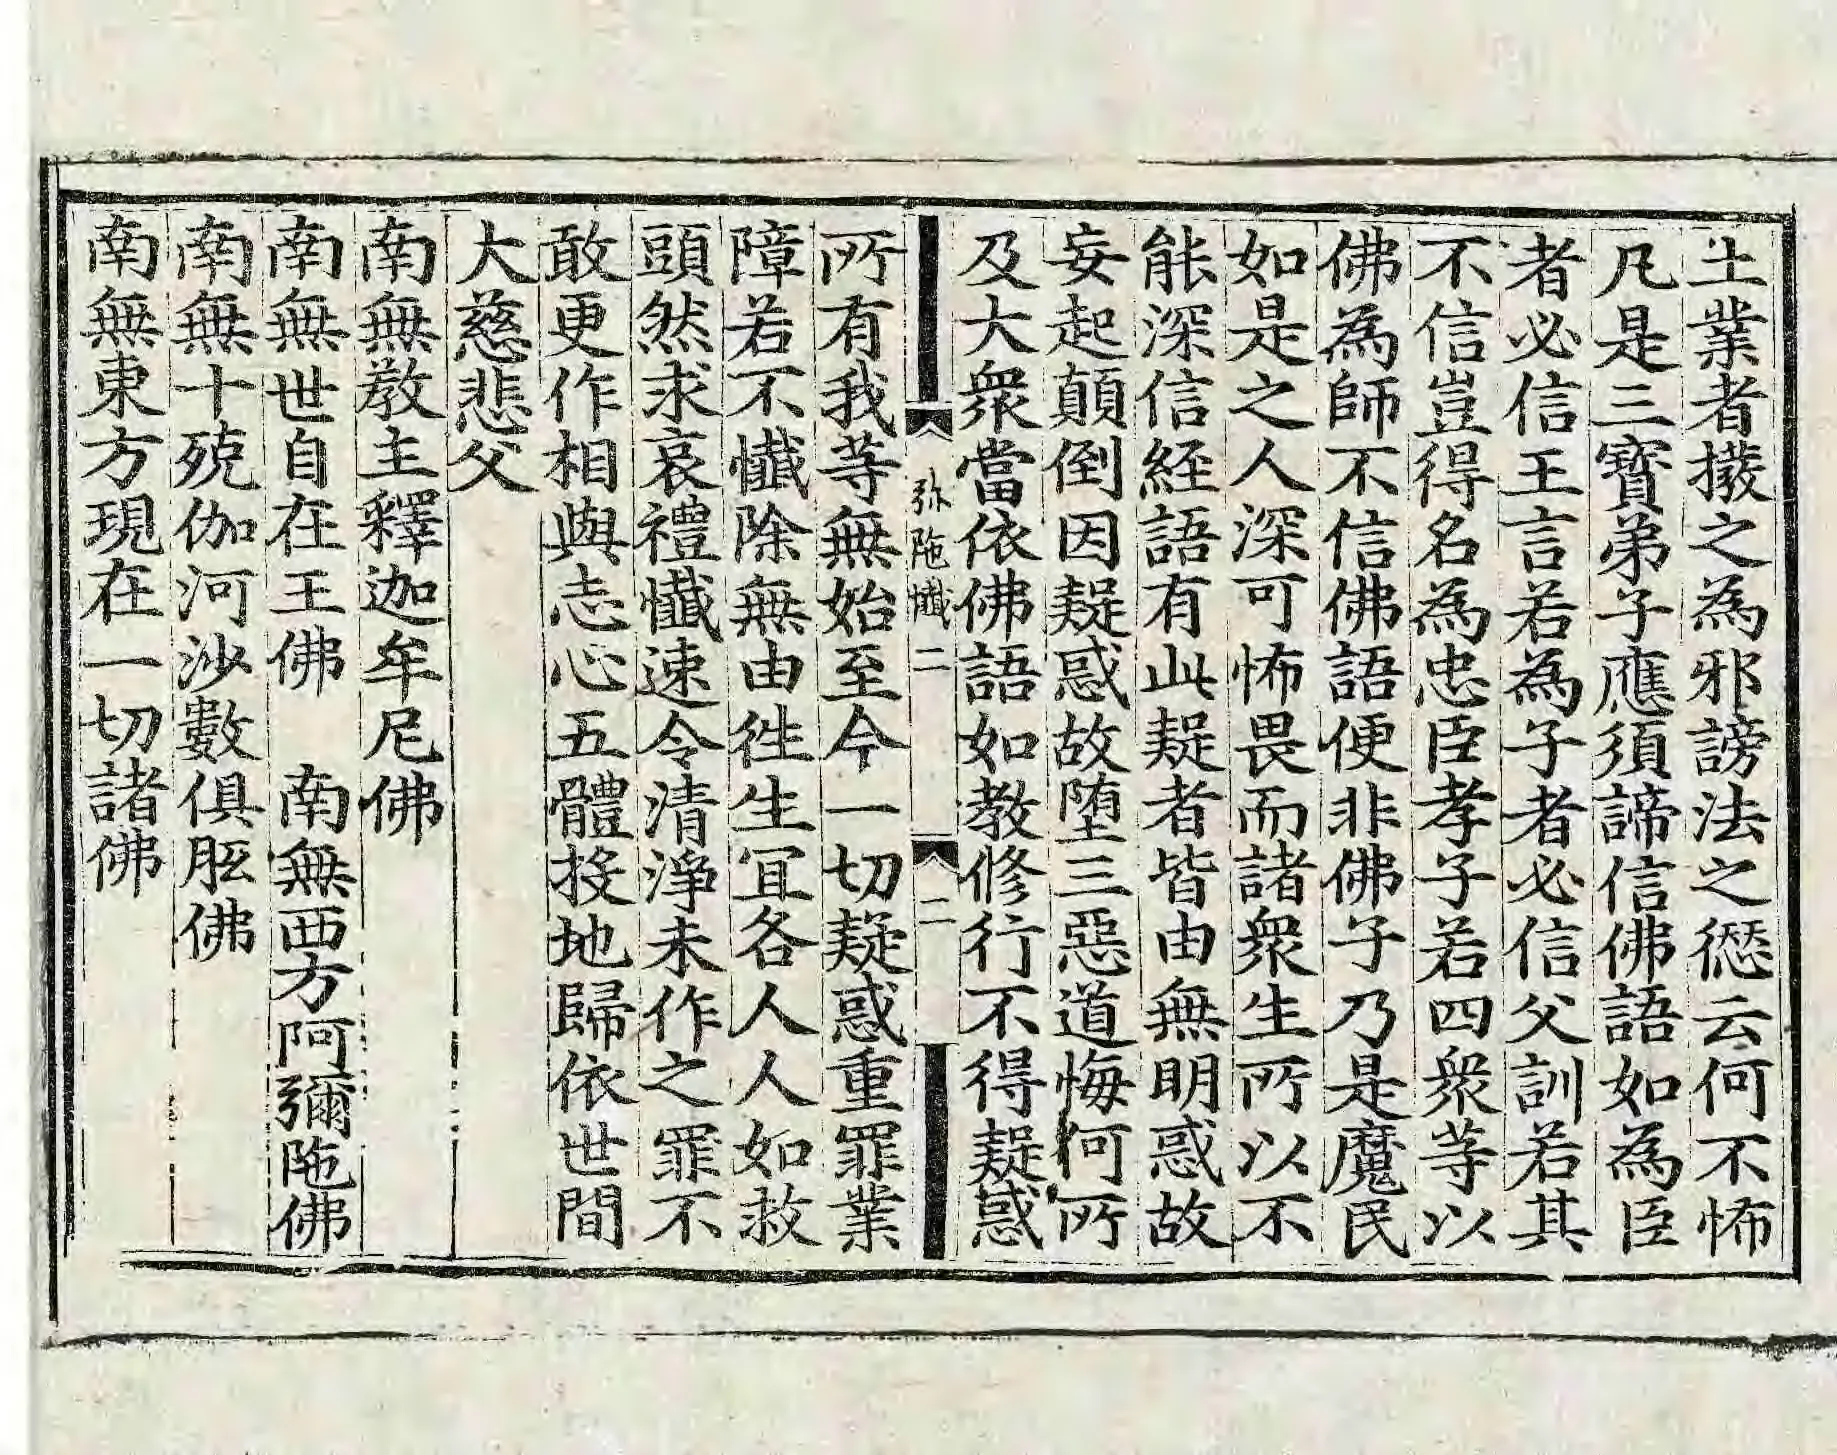 土業者撥之為邪謗法之愆云何不怖
凡是三寶弟子應須諦信佛語如為臣
者必信王言若為子者必信父訓若其
不信豈得名為忠臣孝子若四衆等以
佛為師不信佛語便非佛子乃是魔民
如是之人深可怖畏而諸衆生所以不
能深信経語有此疑者皆由無明惑故
妄起顛倒因疑惑故堕三惡道悔何所
及大衆當依佛語如教修行不得疑惑
弥陁懺 二
二
所有我等無始至今一切疑惑重罪業
障若不懺除無由徃生冝各人人如救
頭然求哀禮懺速令清淨未作之罪不
敢更作相與志心五體投地歸依世間
大慈悲父
南無教主釋迦牟尼佛
南無世自在王佛　南無西方阿彌陁佛
南無十殑伽河沙數俱胝佛
南無東方現在一切諸佛